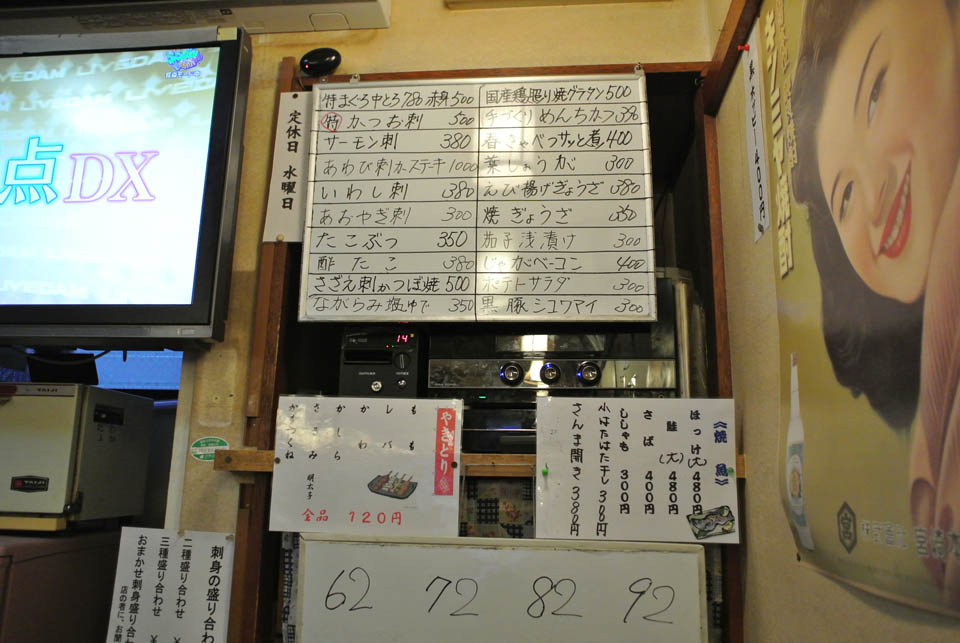 LIVEDAM LIVEDAM
点DX
定休日 水曜日
特まぐろ中とろ780赤身500
特 かつお刺 500
サーモン刺 380
あわび刺カステーキ1000
いわし刺 380
あおやぎ刺 300
たこぶつ 350
酢たこ 380
さざえ刺かつぼ焼500
ながらみ塩ゆで 350
国産鶏照り焼グラタン500
手づくりめんちカツ
春きゃべつサッと煮400
葉しょうが 300
えび揚げぎょうざ380
焼ぎょうざ 350
茄子浅漬け 300
じゃがベーコン 400
ポテトサラダ 300
黒豚シュウマイ 300
14
TAIJI
TAIJI
やきとり
明太子
全品 120円
《焼魚》
ほっけ(大) 480円
鮭(大) 480円
さば 400円
ししゃも 300円
小はたはた干し 300円
さんま開き 380円
刺身の盛り合わ
二種盛り合わせ ¥
三種盛り合わせ ¥
おまかせ刺身盛り合
店の者に、お聞
62 72 82 92
400円